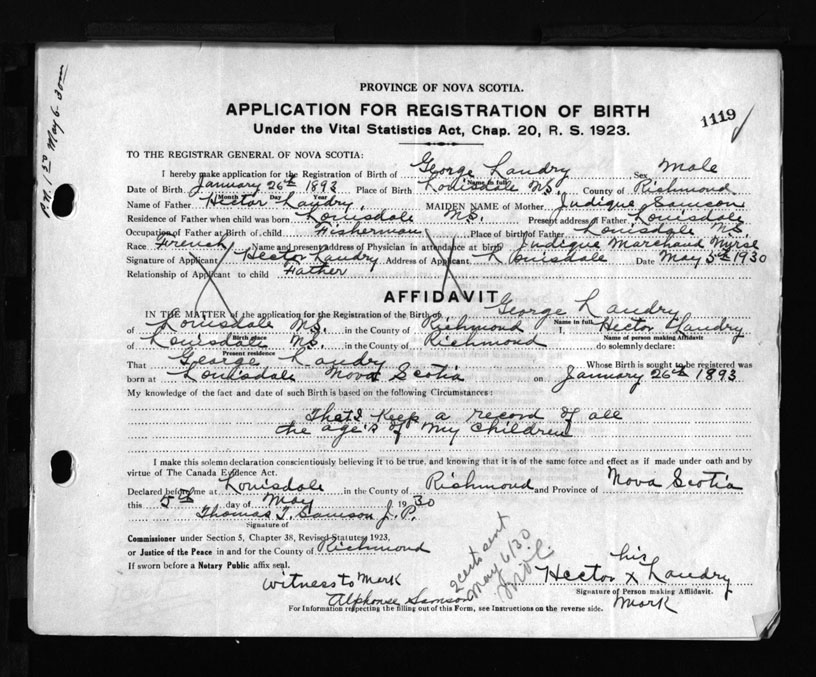 PROVINCE OF NOVA SCOTIA.
APPLICATION FOR REGISTRATION OF BIRTH
1119
Under the Vital Statistics Act, Chap. 20, R. S. 1923.
P.N. 1 50 May 6-30
TO THE REGISTRAR GENERAL OF NOVA SCOTIA:
I hereby make application for the Registration of Birth of George Landry Sex Male
Name in full
Date of Birth January 26th 1893 Place of Birth Louisdale N.S. County of Richmond
Month Day Year
Name of Father Hector Landry MAIDEN NAME of Mother Judique Samson
Residence of Father when child was born Louisdale N.S. Present address of Father Louisdale
Occupation of Father at Birth of child Fisherman Place of birth of Father Louisdale N.S.
Race French Name and present address of Physician in attendance at birth Judique Marchand Nurse
Signature of Applicant Hector Landry Address of Applicant Louisdale Date May 5th 1930
Relationship of Applicant to child Father
AFFIDAVIT
IN THE MATTER of the application for the Registration of the Birth of George Landry
Name in full
of Louisdale N.S. in the County of Richmond I, Hector Landry
Birth place Name of person making Affidavit
of Louisdale N.S. in the County of Richmond do solemnly declare:
Present residence
That George Landry Whose Birth is sought to be registered was
born at Louisdale Nova Scotia on January 26th 1893
My knowledge of the fact and date of such Birth is based on the following Circumstances:
That I Keep a record of all
the age's of my children
I make this solemn declaration conscientiously believing it to be true, and knowing that it is of the same force and effect as if made under oath and by
virtue of The Canada Evidence Act.
Declared before me at Louisdale in the County of Richmond and Province of Nova Scotia
this 5th day of May 1930
Thomas T. Samson J. P.
Signature of
Commissioner under Section 5, Chapter 38, Revised Statutes 1923,
or Justice of the Peace in and for the County of Richmond
If sworn before a Notary Public affix seal.
2 certs sent
May 6/30
his
Hector x Landry
Signature of Person making Affidavit.
Mark
Witness to Mark
Alphonse Samson
For Information respecting the filling out of this Form, see Instructions on the reverse side.